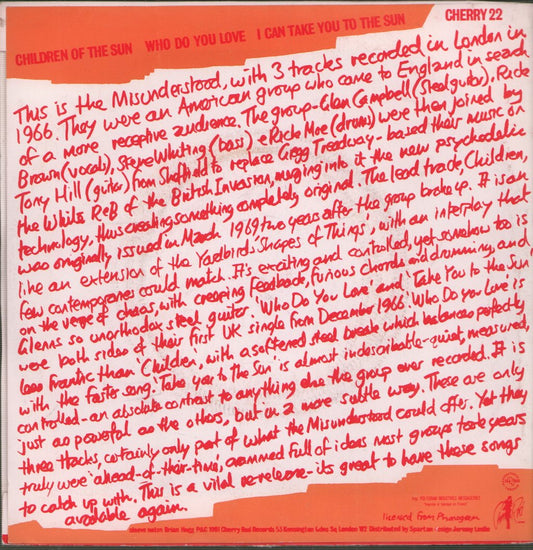 CHERRY 22
CHILDREN OF THE SUN WHO DO YOU LOVE I CAN TAKE YOU TO THE SUN
This is the Misunderstood, with 3 tracks recorded in London in
1966. They were an American group who came to England in search
of a more receptive audience. The group-Glen Campbell (Steel guitar), Rick
Brown (vocals), Steve Whiting (bass) & Rick Moe (drums) were then joined by
Tony Hill (guitar) from Sheffield to replace Gregg Treadway-based their music on
the White R&B of the British Invasion, merging into it the new psychedelic
technology, thus creating something completely original. The lead track, Children,
was originally issued in March 1969 two years after the group broke up. It is an
like an extension of the Yardbirds 'Shapes of Things', with an interplay that
few contemporaries could match. It's exciting and controlled, yet somehow too is
on the verge of chaos, with creeping feedback, furious chords and drumming, and
Glenns so unorthodox steel guitar. 'Who Do You Love' and 'Take You to the Sun'
were both sides of their first UK single from December 1966. Who Do you Love is
less frantic than 'Children', with a softened steel break which balances perfectly
with the faster song. 'Take you to the Sun' is almost indescribable-quiet, measured,
controlled-an absolute contrast to anything else the group ever recorded. It is
just as powerful as the others, but in a more subtle way. These are only
three tracks, certainly only part of what the Misunderstood could offer. Yet they
truly were 'ahead-of-their-time', crammed full of ideas most groups took years
to catch up with. This is a vital re-release-its great to have these songs
available again.
licensed from Phonogram
sleeve notes Brian Hogg P&C 1981 Cherry Red Records 53 Kensington Gdns Sq London W2 Distributed by Spartan